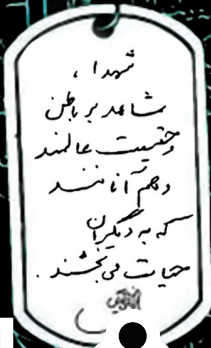 شهدا،
شاهد بر باطن
و حقیقت عالمند
و هم آنانند
که به دیگران
حیات می‌بخشند.